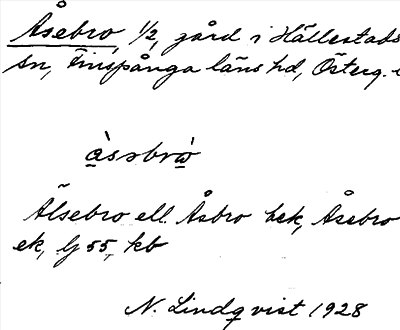 Åsebro, 1/2, gård i Hällestads
sn, Finspånga läns hd, Österg.
Älsebro ell. Åsbro bek, Åsebro
ek, lj 55, kb
N. Lindqvist 1928